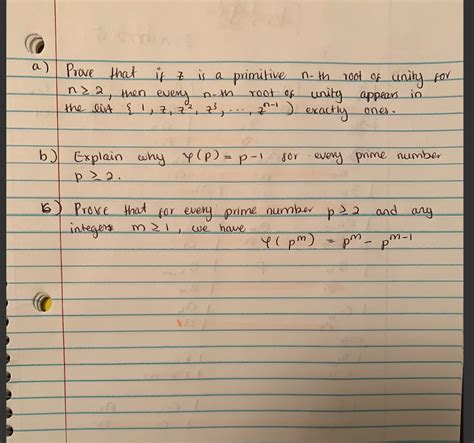 a) Prove that if z is a primitive n-th root of unity for
n ≥ 2, then every n-th root of unity appears in
the list { 1, z, z², z³, ..., zⁿ⁻¹ } exactly ones.
b) Explain why φ(p) = p-1 for every prime number
p ≥ 2.
Prove that for every prime number p ≥ 2 and any
integers m ≥ 1, we have
φ(pᵐ) = pᵐ - pᵐ⁻¹